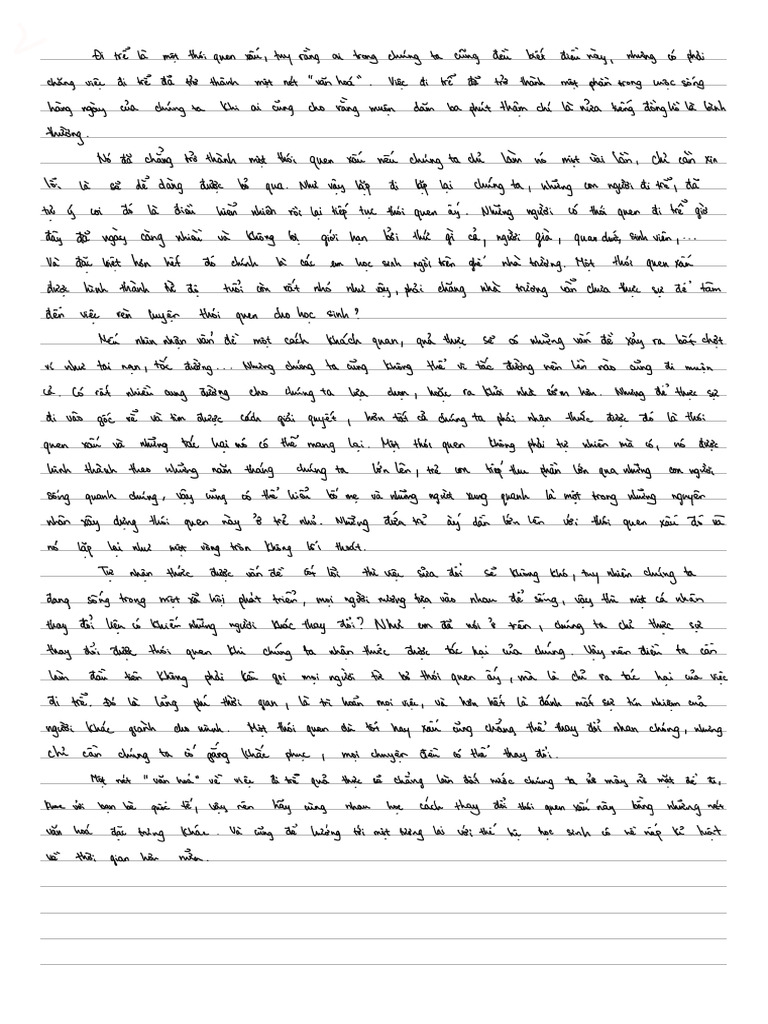 Đi trễ là một thói quen xấu, tuy rằng ai trong chúng ta cũng đều biết điều này, nhưng có phải
chăng việc đi trễ đã trở thành một nét "văn hoá". Việc đi trễ đã trở thành một phần trong cuộc sống
hàng ngày của chúng ta khi ai cũng cho rằng muộn dăm ba phút thậm chí là nửa tiếng đồng hồ là bình
thường.
Nó đã chẳng trở thành một thói quen xấu nếu chúng ta chỉ làm nó một vài lần, chỉ cần xin
lỗi là sẽ dễ dàng được bỏ qua. Như vậy lặp đi lặp lại chúng ta, những con người đi trễ, đã
tự ý coi đó là điều hiển nhiên rồi lại tiếp tục thói quen ấy. Những người có thói quen đi trễ giờ
đây đã ngày càng nhiều và không bị giới hạn bởi thứ gì cả, người già, quan chức, sinh viên,...
Và đặc biệt hơn hết đó chính là các em học sinh ngồi trên ghế nhà trường. Một thói quen xấu
được hình thành từ độ tuổi còn rất nhỏ như vậy, phải chăng nhà trường vẫn chưa thực sự để tâm
đến việc rèn luyện thói quen cho học sinh?
Nếu nhìn nhận vấn đề một cách khách quan, quả thực sẽ có những vấn đề xảy ra bất chợt
ví như tai nạn, tắc đường... Nhưng chúng ta cũng không thể vì tắc đường nên lần nào cũng đi muộn
cả. Có rất nhiều cung đường cho chúng ta lựa chọn, hoặc ra khỏi nhà sớm hơn. Nhưng để thực sự
đi vào gốc rễ và tìm được cách giải quyết, hơn tất cả chúng ta phải nhận thức được đó là thói
quen xấu và những tác hại nó có thể mang lại. Một thói quen không phải tự nhiên mà có, nó được
hình thành theo những năm tháng chúng ta lớn lên, trẻ con tiếp thu phần lớn qua những con người
sống quanh chúng, vậy cũng có thể hiểu bố mẹ và những người xung quanh là một trong những nguyên
nhân xây dựng thói quen này ở trẻ nhỏ. Những đứa trẻ ấy dần lớn lên với thói quen xấu đó và
nó lặp lại như một vòng tròn không lối thoát.
Tự nhận thức được vấn đề cốt lõi thì việc sửa đổi sẽ không khó, tuy nhiên chúng ta
đang sống trong một xã hội phát triển, mọi người nương tựa vào nhau để sống, vậy thì một cá nhân
thay đổi liệu có khiến những người khác thay đổi? Như em đã nói ở trên, chúng ta chỉ thực sự
thay đổi được thói quen khi chúng ta nhận thức được tác hại của chúng. Vậy nên điều ta cần
làm đầu tiên không phải kêu gọi mọi người từ bỏ thói quen ấy, mà là chỉ ra tác hại của việc
đi trễ. Đó là lãng phí thời gian, là trì hoãn mọi việc, và hơn hết là đánh mất sự tín nhiệm của
người khác giành cho mình. Một thói quen dù tốt hay xấu cũng chẳng thể thay đổi nhanh chóng, nhưng
chỉ cần chúng ta cố gắng khắc phục, mọi chuyện đều có thể thay đổi.
Một nét "văn hoá" về việc đi trễ quả thực sẽ chẳng làm đất nước chúng ta nở mày nở mặt
với bạn bè quốc tế, vậy nên hãy cùng nhau học cách thay đổi thói quen xấu này bằng những nét
văn hoá đặc trưng khác. Và cũng để hướng tới một tương lai với thế hệ học sinh có nề nếp kỉ luật
về thời gian hơn nữa.